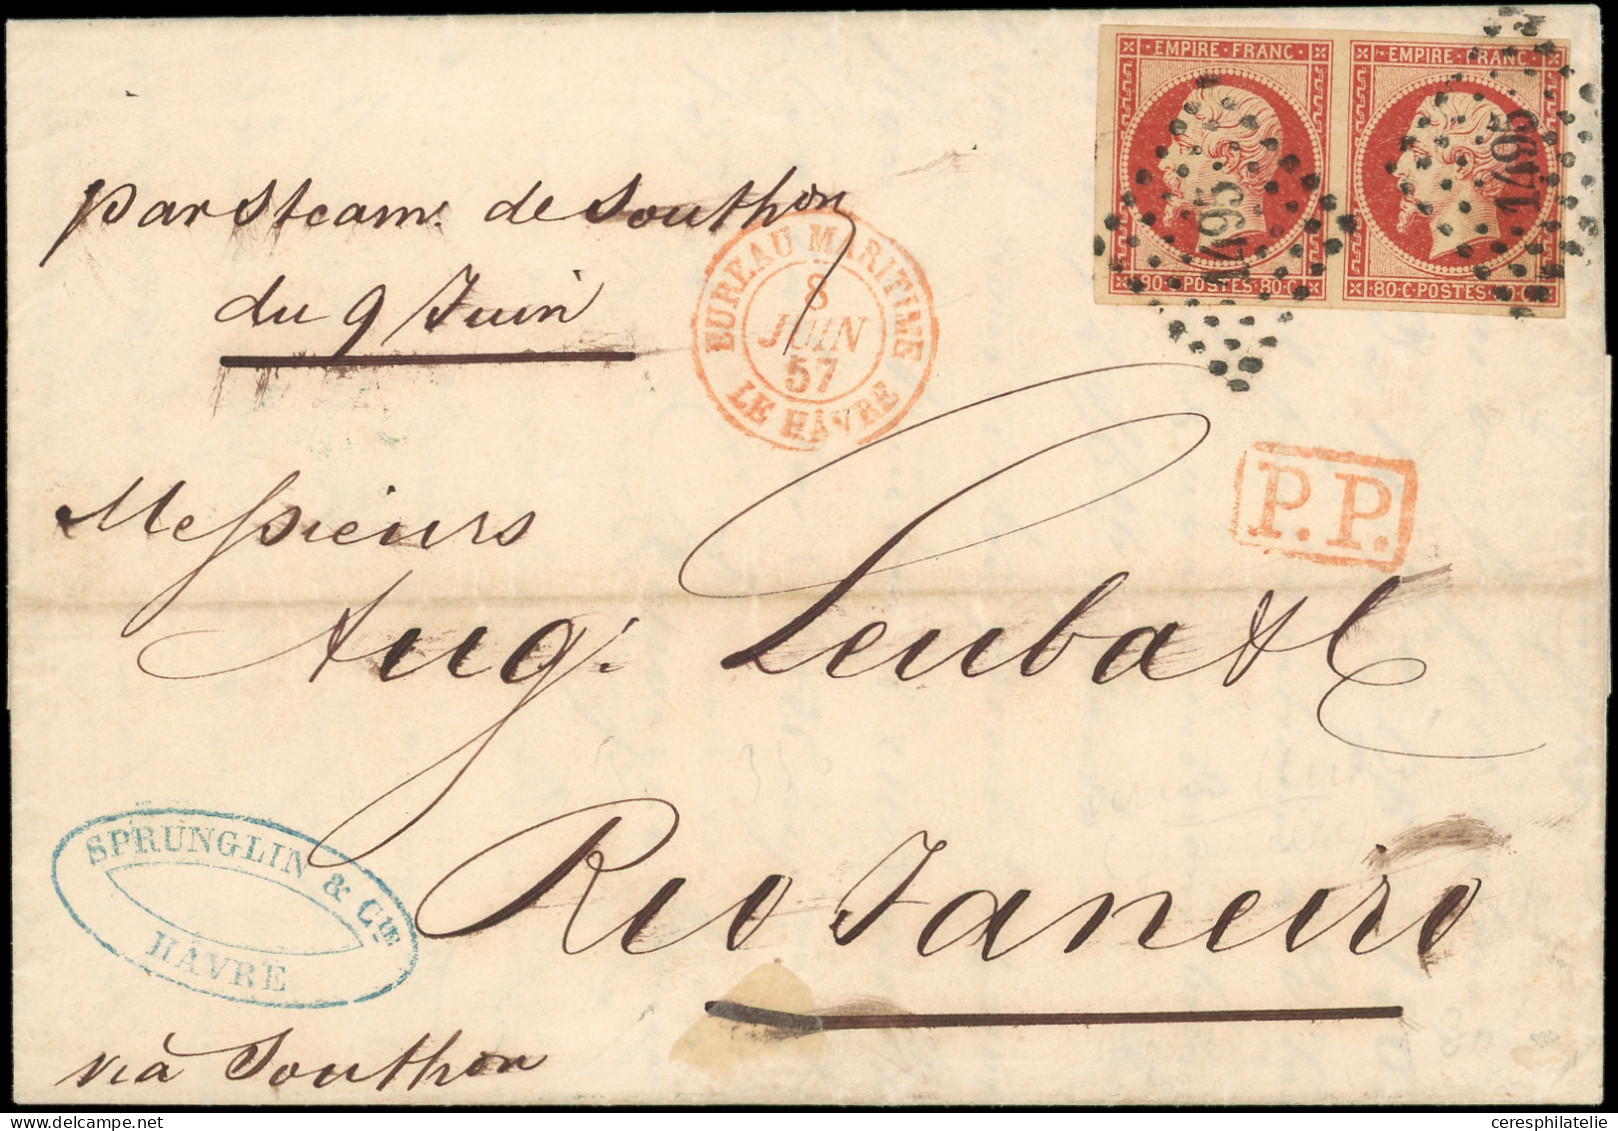 EMPIRE · FRANC ·
EMPIRE · FRANC ·
1495
1495
80·C·POSTES·80·C
80·C·POSTES·80·C
par Steam. de Southon
du 9 Juin
BUREAU MARITIME
8
JUIN
57
LE HÂVRE
P.P.
Messieurs
Aug. Leuba & C
Rio Janeiro
SPRUNGLIN & Cie
HÂVRE
via Southon
ceresphilatelie